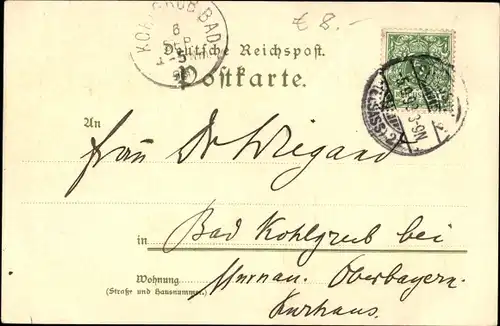 € 2.-
KOHLGRUB-BAD
6
SEP
4-5
98
Deutsche Reichspost.
Postkarte.
An
Frau Dr Wiegand
in Bad Kohlgrub bei
Wohnung Murnau. Oberbayern.
(Straße und Hausnummer)
Kurhaus.